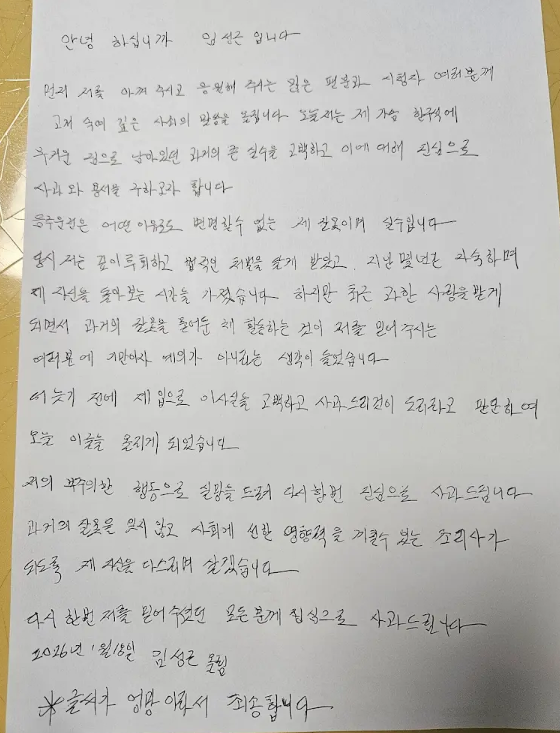 안녕 하십니까 임성근 입니다
먼저 저를 아껴 주시고 응원해 주시는 많은 팬분과 시청자 여러분께
고개 숙여 깊은 사죄의 말씀을 올립니다 오늘 저는 제 가슴 한구석에
무거운 짐으로 남아있던 과거의 큰 실수를 고백하고 이에 대해 진심으로
사과와 용서를 구하고자 합니다
음주운전은 어떤 이유로도 변명할수 없는 제 잘못이며 실수입니다
당시 저는 깊이 후회하고 법적인 처벌을 달게 받았고, 지난 몇년간 자숙하며
제 자신을 돌아 보는 시간을 가졌습니다 하지만 최근 과한 사랑을 받게
되면서 과거의 잘못을 묻어둔 채 활동하는 것이 저를 믿어 주시는
여러분에 기만이자 예의가 아니라는 생각이 들었습니다
더 늦기 전에 제 입으로 이사실을 고백하고 사과드리것이 도리라고 판단하여
오늘 이글을 올리게 되었습니다
저의 부주의한 행동으로 실망을 드려 다시한번 진심으로 사과드립니다
과거의 잘못을 잊지 않고 사회에 선한 영향력을 끼칠수 있는 조리사가
되도록 제 자신을 다스리며 살겠습니다
다시 한번 저를 믿어주셨던 모든분께 진심으로 사과드립니다
2026년 1월 18일 임성근 올림
※글씨가 엉망이라서 죄송합니다